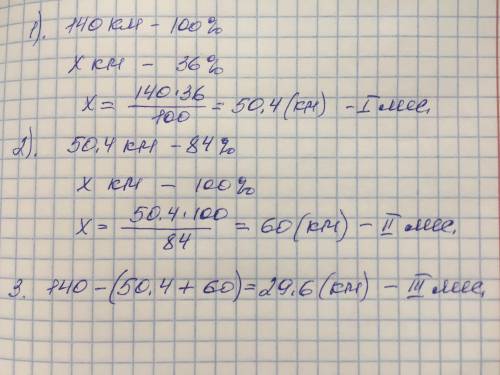 1). 140 км – 100%
х км – 36%
х = 140·36/100 = 50,4 (км) – I мес.
2). 50,4 км – 84%
х км – 100%
х = 50.4·100/84 = 60 (км) – II мес.
3. 140 – (50.4 + 60) = 29.6 (км) – III мес.